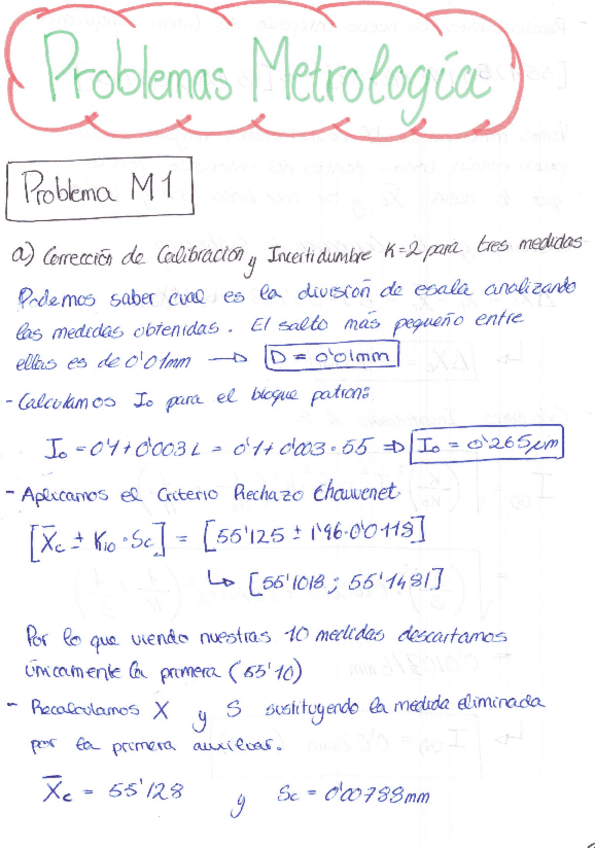 Problemas Metrología
Problema M1
a) Corrección de Calibración y Incertidumbre K=2 para tres medidas
Podemos saber cual es la división de esala analizando
las medidas obtenidas. El salto más pequeño entre
ellas es de 0'01mm → D = 0'01mm
- Calculamos I₀ para el bloque patrón:
I₀ = 0'1 + 0'003 L = 0'1 + 0'003 · 55 ⇒ I₀ = 0'265 μm
- Aplicamos el Criterio Rechazo Chauvenet
[X̄c ± K10 · Sc] = [55'125 ± 1'96 · 0'0118]
↳ [55'1018 ; 55'1481]
Por lo que viendo nuestras 10 medidas descartamos
únicamente la primera (55'10)
- Recalculamos X y S sustituyendo la medida eliminada
por la primera auxiliar.
X̄c = 55'128 y Sc = 0'00788mm